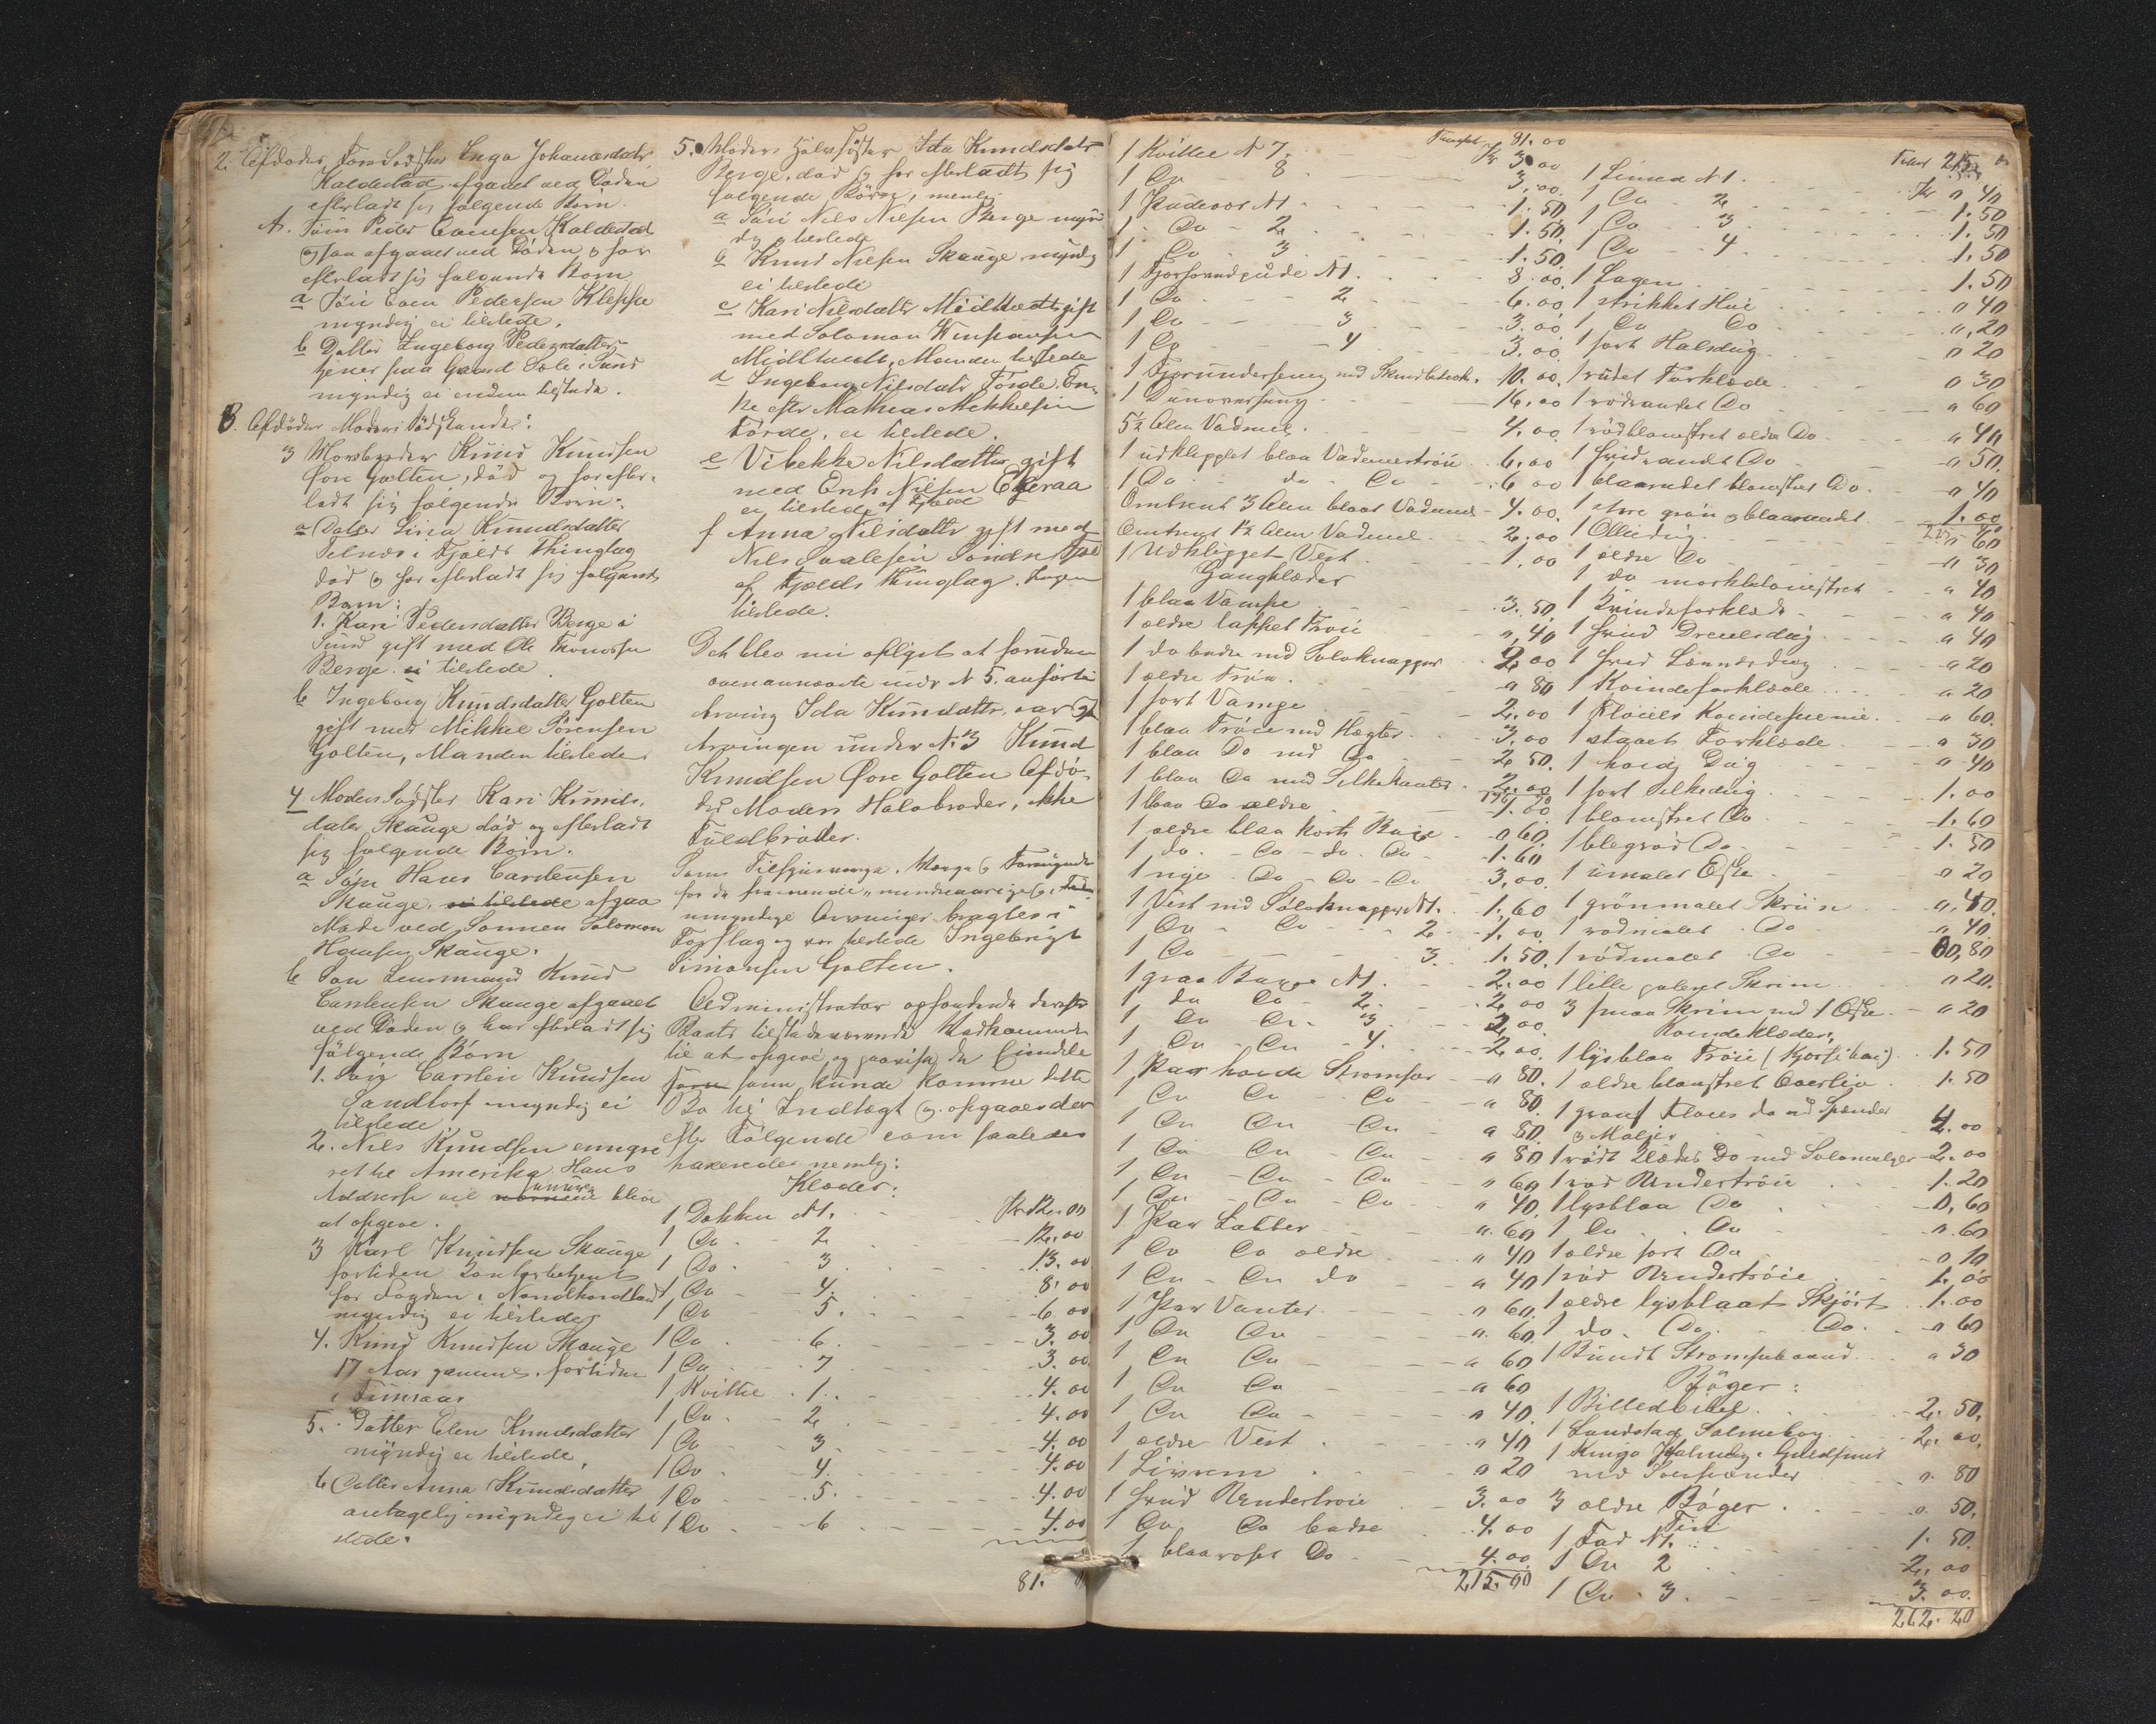 2. Afdødes Farssødster Inga Johanesdatr
Kaldestad afgaaet ved Døden
efterladt sig følgende Børn.
A. Søn Peder Larsen Kaldestad
ogsaa afgaaet ved Døden og har
efterladt sig følgende Børn
a Søn Lars Pedersen Kleppe
myndig ei tilstede.
b Datter Ingeborg Pedersdatter
tjener paa Gaard Sæle i Sund
myndig ei endnu tilstede.
B. Afdødes Moders Sødskende:
3 Morbroder Knud Knudsen
Øvre Golten, død og har efter-
ladt sig følgende Børn:
a Datter Sirie Knudsdatter
Telnæs i Fjelds Thinglag
død og har efterladt sig følgende
Børn:
1. Kari Pedersdatter Berge i
Sund gift med Ole Thomassen
Berge ei tilstede
b Ingeborg Knudsdatter Golten
gift med Mikkel Sørensen
Golten, Manden tilstede
4 Moders Sødster Kari Knuds-
datter Skauge død og efterladt
sig følgende Børn.
a Søn Hans Carstensen
Skauge, ei tilstede afgaa
Møde ved Sønnen Salomon
Hansen Skauge.
b Søn Lensmand Knud
Carstensen Skauge afgaaet
ved Døden og har efterladt sig
følgende Børn
1. Søn Carsten Knudsen
Sandtorf myndig ei
tilstede
2. Nils Knudsen emigre
ret til Amerika. Hans
Addresse vil senere blive
at opgive.
3 Karl Knudsen Skauge
fortiden Contorbetjent
hos Fogden i Nordhordland
myndig ei tilstede
4. Knud Knudsen Skauge
17 Aar gammel. fortiden
i Finnaas
5. Datter Elen Knudsdatter
myndig ei tilstede.
6 Datter Anna Knudsdatter
antagelig myndig ei til
stede.
5. Moders Halvsøster Ida Knudsdatr
Berge, død og har efterladt sig
følgende Børn, nemlig
a Søn Nils Nilsen Berge myn
dig og tilstede
b Knud Nilsen Skauge myndig
ei tilstede
c Kari Nilsdatter Midttveit gift
med Salomon
Midttveit, Manden tilstede
d Ingeborg Nilsdatr Førde, En-
ke efter Mathias Mikkelsen
Førde, ei tilstede.
e Vibekke Nilsdatter gift
med Erik Nilsen Ekeraa
ei tilstede af Fjeld
f Anna Nilsdatter gift med
Nils
af Fjelds Thinglag. Ingen
tilstede.
Det blev nu oplyst at foruden
ovennævnte under N 5. anførte
Arving Ida Knudsdatter, var og
Arvingen under N. 3 Knud
Knudsen Øvre Golten Afdø-
des Moders Halvbroder, ikke
Fuldbroder.
Som Tilsynsværge, Værge og Formynder
for de fraværende, mindreaarige og
umyndige Arvinger bragtes i
Forslag og var tilstede Ingebrigt
Simonsen Golten.
Administrator opfordrede derefter
Boets tilstedeværende Vedkommende
til at opgive og paavise de Eiendele
som kunde komme dette
Bo til Indtægt og opgaves der
efter Følgende som saaledes
nemlig:
Klæder:
1 Dækken N1. Kr 12.00
1 Do - 2 - 12.00
1 Do - 3 13.00
1 Do - 4. 8.00
1 Do - 5. - 6.00
1 Do - 6. - 3.00
1 Do - 7 - 3.00
1 Kvittel . 1. 4.00
1 Do - 2 - 4.00
1 Do - 3 - 4.00
1 Do - 4. - 4.00
1 Do - 5. - 4.00
1 Do - 6 - 4.00
81.
Transport 81.00
1 Kvittel N 7. Kr 3.00
1 Do - 8 3.00
1 Pudevor N1 1.50
1 Do - 2 1.50
1 Do 3 1.50
1 Fjærhovedpude N1. 8.00
1 Do - 2 6.00
1 Do - 3 3.00
1 Do - 4 3.00
1 Fjærunderseng med 10.00
1 Dunoverseng 16.00
5½ Alen Vadmel 4.00
1 udklippet blaa Vadmelstrøie 6.00
1 Do - do - Do - 6.00
Omtrent 3 Alen blaat Vadmel - 4.00
Omtrent 1½ Alen Vadmel 2.00
1 Udklippet Vest 1.00
Gangklæder
1 blaa Vampe 3.50
1 ældre lappet Trøie " 40
1 do bedre med Sølvknapper 2.00
1 ældre Trøie " 80
1 sort Vampe 2.00
1 blaa Trøie med Hægter 3.00
1 blaa Do med Do 2.50
1 blaa Do med Silkekanter 2.00
1 blaa Do ældre 1.00
1 ældre blaa korte Buxe " 60
1 do - Do - do. Do 1.60
1 nye - Do - Do - Do 3.00
1 Vest med Sølvknapper N1. 1.60
1 Do - Do - 2 1.00
1 Do 3. 1.50
1 graa Buxe N1. 2.00
1 do Do - 2. 2.00
1 Do - Do - 3 2.00
1 Do - Do - 4. 2.00
1 Par hvide Strømper " 80
1 Do Do - Do " 80
1 Do Do Do " 80
1 Do Do - Do " 80
1 Do - Do - Do " 60
1 Do - Do - Do " 40
1 Par Labber " 60
1 Do Do ældre " 40
1 Do - Do do " 40
1 Par Vanter " 60
1 Do Do " 60
1 Do Do " 60
1 Do Do " 60
1 Do Do " 40
1 ældre Vest " 40
1 Livrem " 20
1 hvid Undertrøie 3.00
1 Do Do bedre 4.00
1 blaaroset Do 4.00
215.00
1 Linned N1. Kr " 40
1 Do - 2 1.50
1 Do - 3 1.50
1 Do - 4 1.50
1 Lagen 1.50
1 strikket Hue " 40
1 Do Do " 20
1 sort Halsdug " 20
1 rudet Forklæde " 30
1 rødrandet Do " 60
1 rødblomstret ældre Do " 40
1 hvidrandet Do " 50
1 blaarudet blomstret Do " 40
1 større grøn og blaarandet 1.00
1 Olliedug " 60
1 ældre Do " 30
1 do mørkblomstret " 40
1 Kvindeforklæde " 40
1 hvid Dreielsdug " 40
1 hvid Lærredsdug " 20
1 Kvindeforklæde " 20
1 Fløiels Kvindehue " 60
1 Forklæde " 30
1 hvid Dug " 40
1 sort Silkedug 1.00
1 blomstret Do 1.60
1 blegrød Do 1.50
1 umalet Eske " 20
1 grønmalet Skrin " 40
1 rødmalet Do " 40
1 rødmalet Do 0,80
1 lille Skrin " 20
3 smaa Skrin med 1 Eske " 20
Kvindeklæder:
1 lysblaa Trøie 1.50
1 ældre blomstret Overliv 1.50
1 grønt Fløiels do med Spænder
og Maljer 4.00
1 rødt Klædes Do med Sølvmaljer 2.00
1 rød Undertrøie 1.20
1 lysblaa Do 0,60
1 Do Do " 60
1 ældre sort Do " 10
1 rød Undertrøie 1.00
1 ældre lysblaat Skjørt 1.00
1 do. Do. Do. " 60
1 Bundt Strømpebaand " 30
Bøger:
1 Billedbibel 2.50
1 Landstads Salmebog 2.00
1 Kingo
med Sølvspænder " 80
3 ældre Bøger " 50
Tin
1 Fad N1. 1.50
1 Do 2 2.00
1 Do - 3. 3.00
262.20